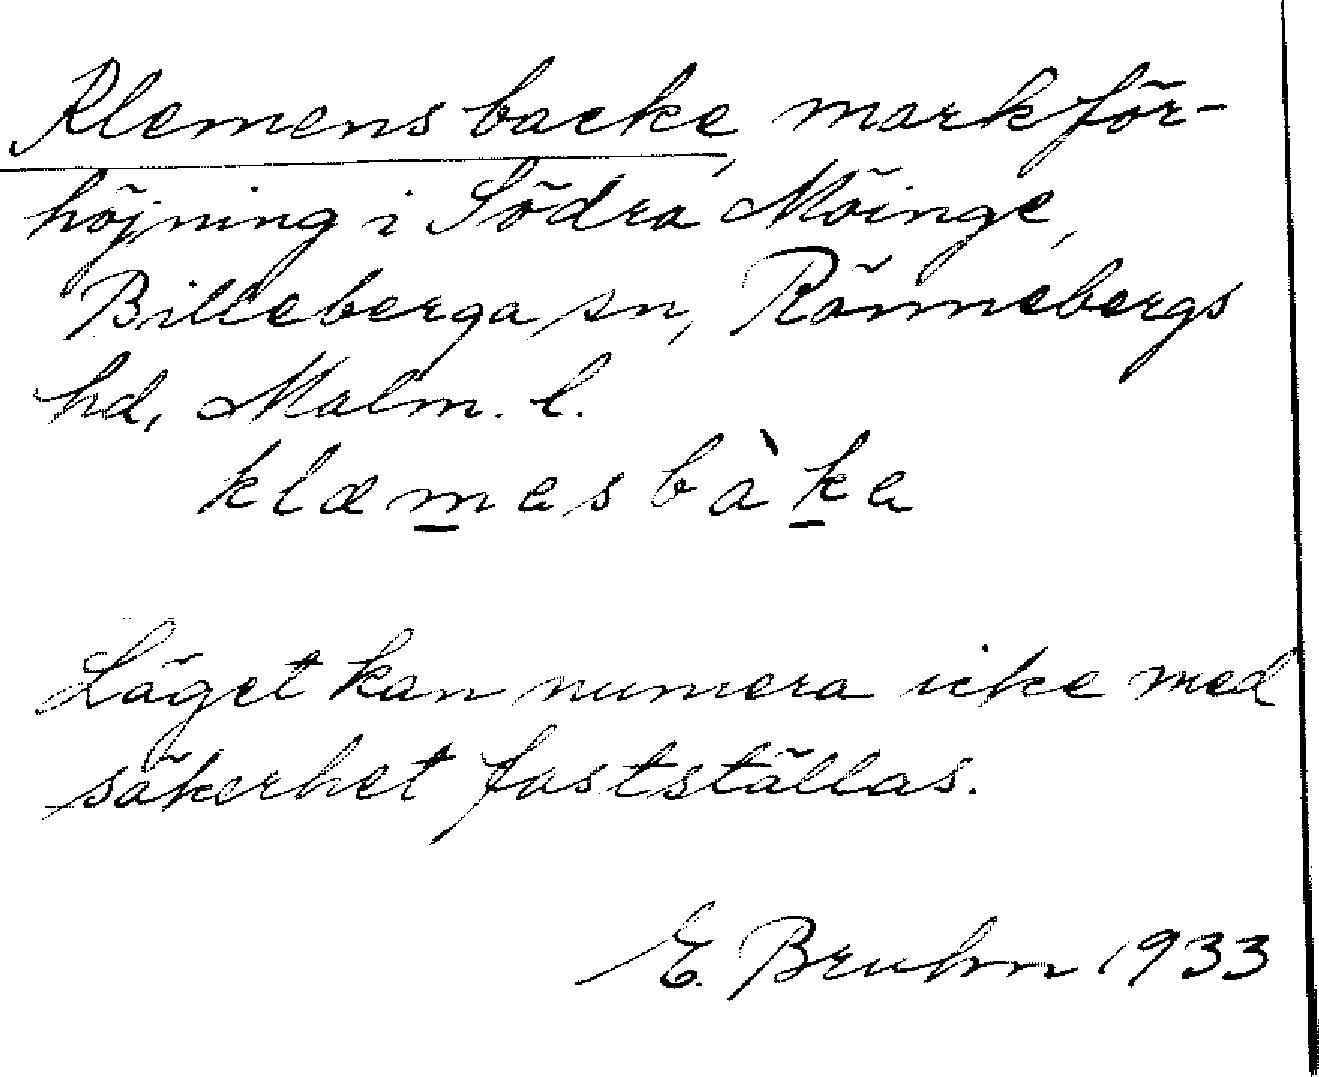 Klemensbacke, markför-
höjning i Södra Möinge,
Billeberga sn, Rönnebergs
hd, Malm. l.
klæmasbàka
Läget kan numera icke med
säkerhet fastställas.
E. Bruhn 1933